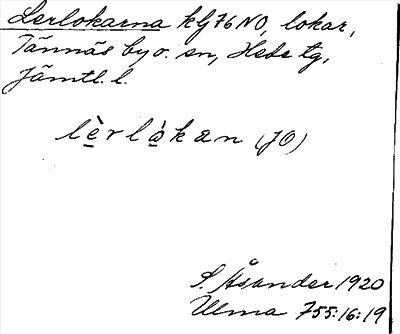 Lerlokarna klf 76 NO, lokar,
Tännäs by o. sn, Hede tg,
Jämtl. l.
lèrlòkan (JO)
S. Åsander 1920
Ulma 755:16:19